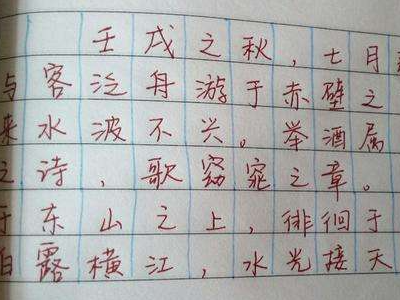 壬戌之秋，七月
与客泛舟游于赤壁之
来水波不兴。举酒属
之诗，歌窈窕之章。
于东山之上，徘徊于
白露横江，水光接天